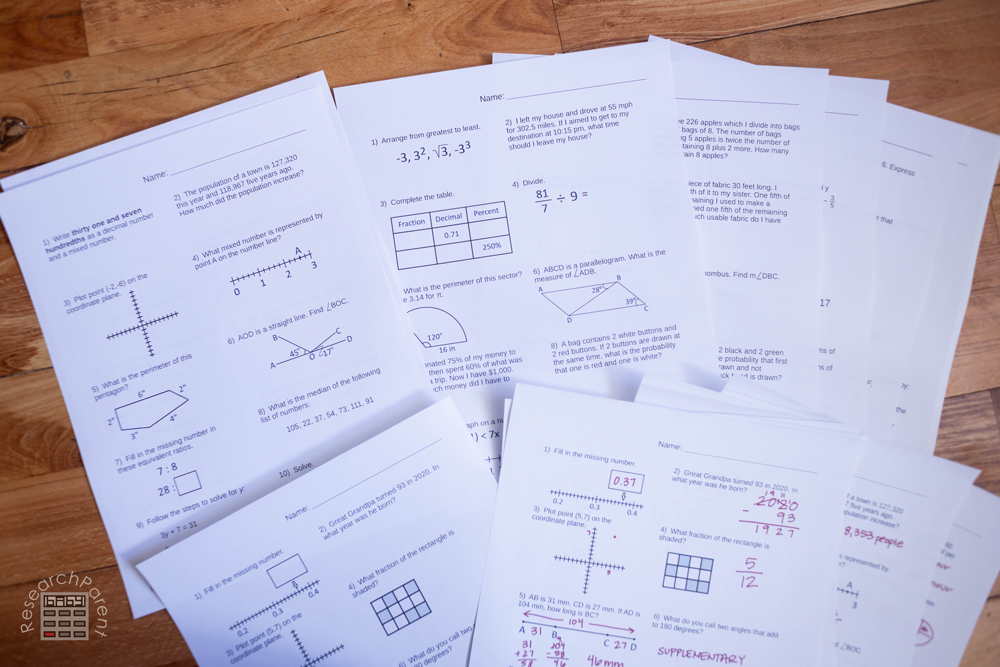 Name:
1) Write thirty one and seven
hundredths as a decimal number
and a mixed number.
2) The population of a town is 127,320
this year and 118,967 five years ago.
How much did the population increase?
3) Plot point (-2,-6) on the
coordinate plane.
4) What mixed number is represented by
point A on the number line?
A
0 1 2 3
5) What is the perimeter of this
pentagon?
6" 2"
2" 4"
3"
6) AOD is a straight line. Find ∠BOC.
B C
45° 17°
A O D
7) Fill in the missing number in
these equivalent ratios.
7 : 8
28 :
8) What is the median of the following
list of numbers:
105, 22, 37, 54, 73, 111, 91
9) Follow the steps to solve for y:
3y + 7 = 31
10) Solve.
Name:
1) Arrange from greatest to least.
-3, 3², √3, -3³
2) I left my house and drove at 55 mph
for 302.5 miles. If I aimed to get to my
destination at 10:15 pm, what time
should I leave my house?
3) Complete the table.
Fraction Decimal Percent
0.71
250%
4) Divide.
81/7 ÷ 9 =
What is the perimeter of this sector?
3.14 for π.
120°
16 in
6) ABCD is a parallelogram. What is the
measure of ∠ADB.
A B
28°
39°
D C
75% of my money to
then spent 60% of what was
trip. Now I have $1,000.
money did I have to
8) A bag contains 2 white buttons and
2 red buttons. If 2 buttons are drawn at
the same time, what is the probability
that one is red and one is white?
< 7x
226 apples which I divide into bags
bags of 8. The number of bags
5 apples is twice the number of
8 plus 2 more. How many
8 apples?
of fabric 30 feet long. I
of it to my sister. One fifth of
I used to make a
one fifth of the remaining
usable fabric do I have
Find m∠DBC.
17
2 black and 2 green
probability that first
and not
is drawn?
6. Express
that
the
Name:
1) Fill in the missing number.
0.2 0.3 0.4
2) Great Grandpa turned 93 in 2020. In
what year was he born?
3) Plot point (5,7) on the
coordinate plane.
4) What fraction of the rectangle is
shaded?
6) What do you call two
degrees?
Name:
1) Fill in the missing number.
0.37
0.2 0.3 0.4
2) Great Grandpa turned 93 in 2020. In
what year was he born?
2020
- 93
1927
3) Plot point (5,7) on the
coordinate plane.
4) What fraction of the rectangle is
shaded?
5
12
5) AB is 31 mm. CD is 27 mm. If AD is
104 mm, how long is BC?
104
A 31 B C 27 D
31 104
+27 - 58
58 46
46mm
6) What do you call two angles that add
to 180 degrees?
SUPPLEMENTARY
a town is 127,320
five years ago.
increase?
8,353 people
represented by
A
3
∠BOC.
ResearchParent